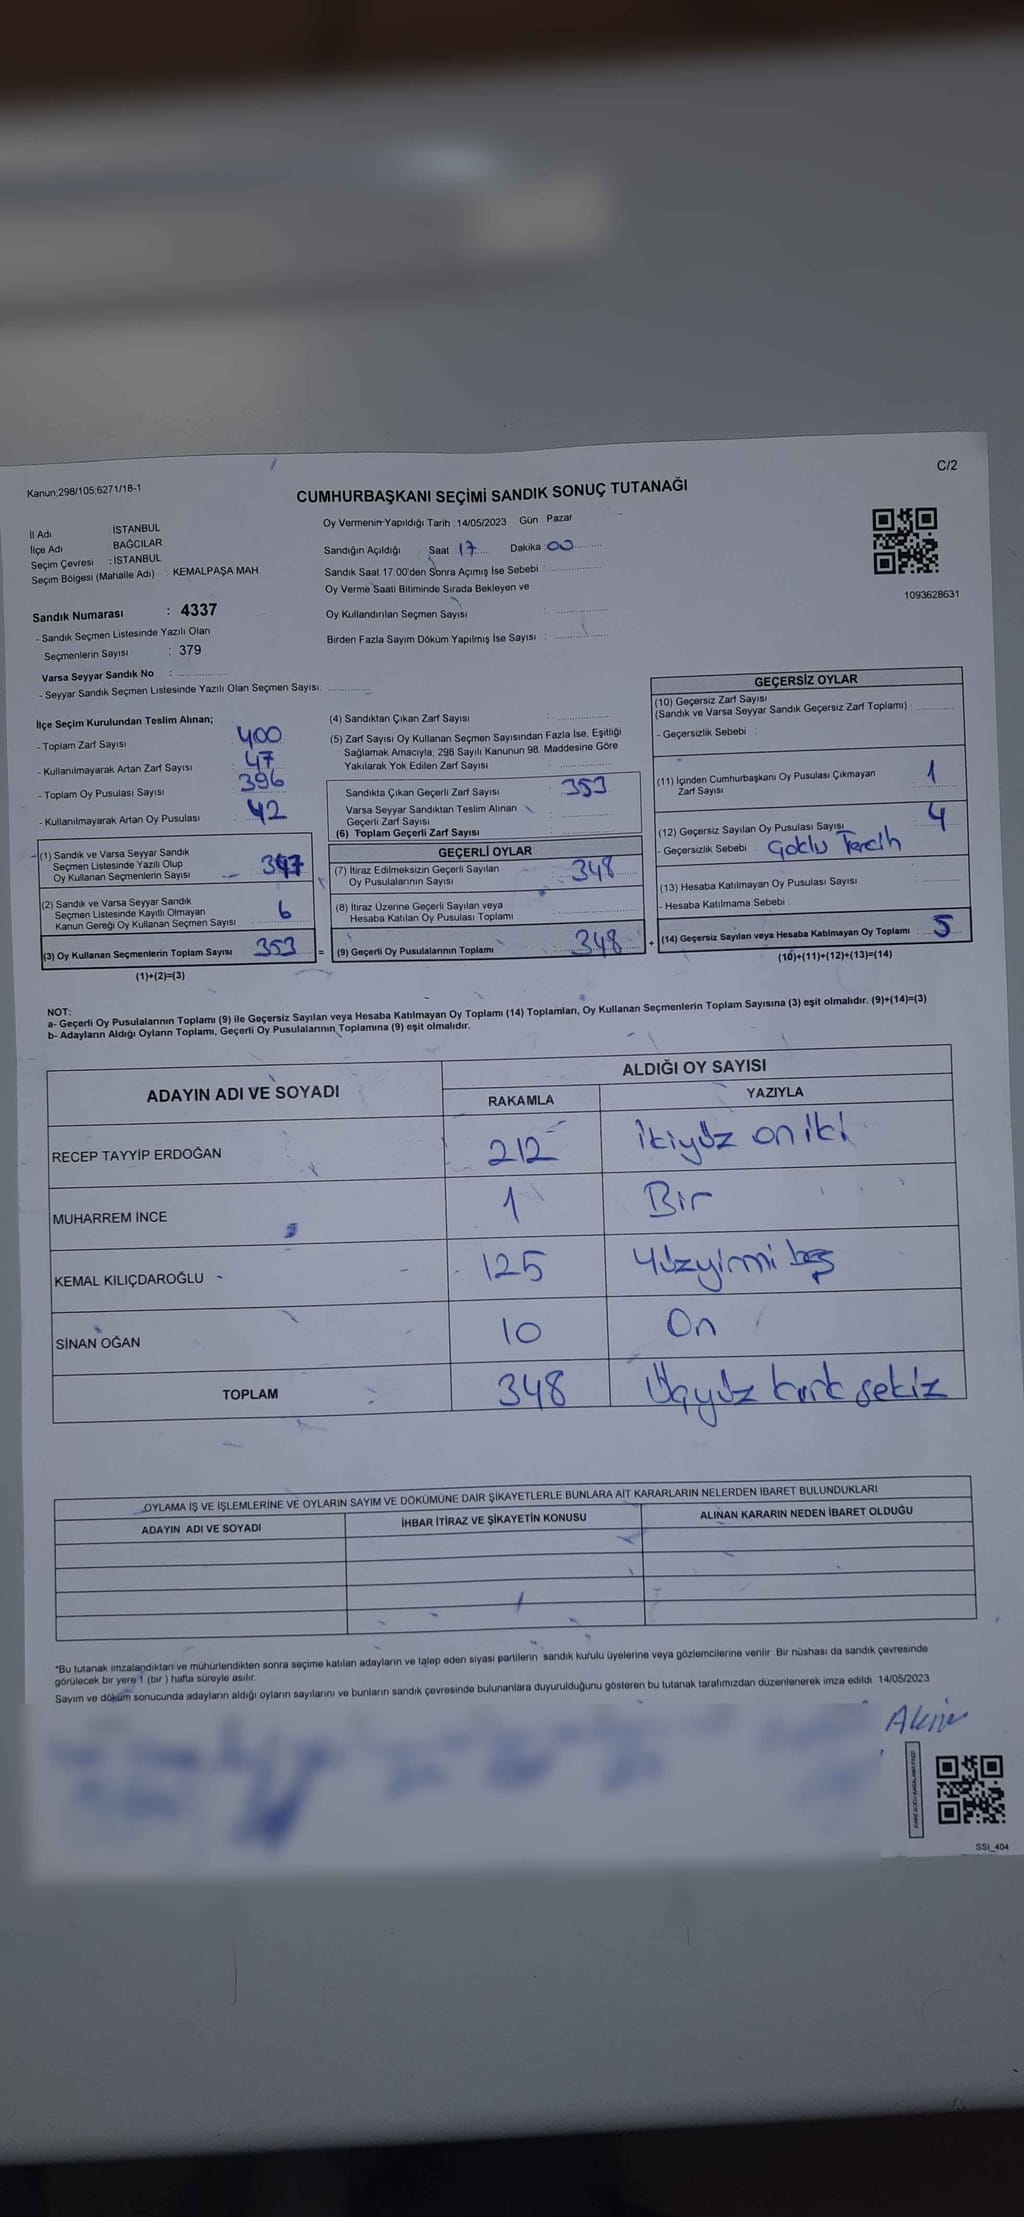 C/2
Kanun;298/105;6271/18-1
CUMHURBAŞKANI SEÇİMİ SANDIK SONUÇ TUTANAĞI
İl Adı : İSTANBUL
İlçe Adı BAĞCILAR
Seçim Çevresi : İSTANBUL
Seçim Bölgesi (Mahalle Adı) : KEMALPAŞA MAH.
Oy Vermenin Yapıldığı Tarih :14/05/2023 Gün : Pazar
Sandığın Açıldığı : Saat : 17 Dakika : 00
Sandık Saat 17.00'den Sonra Açımış İse Sebebi :
Oy Verme Saati Bitiminde Sırada Bekleyen ve
Oy Kullandırılan Seçmen Sayısı :
Birden Fazla Sayım Döküm Yapılmış İse Sayısı :
1093628631
Sandık Numarası : 4337
- Sandık Seçmen Listesinde Yazılı Olan
Seçmenlerin Sayısı : 379
Varsa Seyyar Sandık No :
- Seyyar Sandık Seçmen Listesinde Yazılı Olan Seçmen Sayısı:
İlçe Seçim Kurulundan Teslim Alınan;
- Toplam Zarf Sayısı : 400
- Kullanılmayarak Artan Zarf Sayısı : 47
- Toplam Oy Pusulası Sayısı : 396
- Kullanılmayarak Artan Oy Pusulası : 42
(1) Sandık ve Varsa Seyyar Sandık
Seçmen Listesinde Yazılı Olup
Oy Kullanan Seçmenlerin Sayısı 347
(2) Sandık ve Varsa Seyyar Sandık
Seçmen Listesinde Kayıtlı Olmayan
Kanun Gereği Oy Kullanan Seçmen Sayısı : 6
(3) Oy Kullanan Seçmenlerin Toplam Sayısı 353 =
(1)+(2)=(3)
(4) Sandıktan Çıkan Zarf Sayısı :
(5) Zarf Sayısı Oy Kullanan Seçmen Sayısından Fazla İse, Eşitliği
Sağlamak Amacıyla; 298 Sayılı Kanunun 98. Maddesine Göre
Yakılarak Yok Edilen Zarf Sayısı :
Sandıkta Çıkan Geçerli Zarf Sayısı : 353
Varsa Seyyar Sandıktan Teslim Alınan
Geçerli Zarf Sayısı :
(6) Toplam Geçerli Zarf Sayısı :
GEÇERLİ OYLAR
(7) İtiraz Edilmeksizin Geçerli Sayılan
Oy Pusulalarının Sayısı : 348
(8) İtiraz Üzerine Geçerli Sayılan veya
Hesaba Katılan Oy Pusulası Toplamı :
(9) Geçerli Oy Pusulalarının Toplamı : 348 +
GEÇERSİZ OYLAR
(10) Geçersiz Zarf Sayısı
(Sandık ve Varsa Seyyar Sandık Geçersiz Zarf Toplamı) :
- Geçersizlik Sebebi :
(11) İçinden Cumhurbaşkanı Oy Pusulası Çıkmayan
Zarf Sayısı : 1
(12) Geçersiz Sayılan Oy Pusulası Sayısı : 4
- Geçersizlik Sebebi : Çoklu Tercih
(13) Hesaba Katılmayan Oy Pusulası Sayısı :
- Hesaba Katılmama Sebebi :
(14) Geçersiz Sayılan veya Hesaba Katılmayan Oy Toplamı : 5
(10)+(11)+(12)+(13)=(14)
NOT:
a- Geçerli Oy Pusulalarının Toplamı (9) ile Geçersiz Sayılan veya Hesaba Katılmayan Oy Toplamı (14) Toplamları, Oy Kullanan Seçmenlerin Toplam Sayısına (3) eşit olmalıdır. (9)+(14)=(3)
b- Adayların Aldığı Oyların Toplamı, Geçerli Oy Pusulalarının Toplamına (9) eşit olmalıdır.
ADAYIN ADI VE SOYADI ALDIĞI OY SAYISI
RAKAMLA YAZIYLA
RECEP TAYYİP ERDOĞAN 212 İkiyüz oniki
MUHARREM İNCE 1 Bir
KEMAL KILIÇDAROĞLU 125 Yüzyirmi beş
SİNAN OĞAN 10 On
TOPLAM 348 Üçyüz kırk sekiz
OYLAMA İŞ VE İŞLEMLERİNE VE OYLARIN SAYIM VE DÖKÜMÜNE DAİR ŞİKAYETLERLE BUNLARA AİT KARARLARIN NELERDEN İBARET BULUNDUKLARI
ADAYIN ADI VE SOYADI İHBAR İTİRAZ VE ŞİKAYETİN KONUSU ALINAN KARARIN NEDEN İBARET OLDUĞU
*Bu tutanak imzalandıktan ve mühürlendikten sonra seçime katılan adayların ve talep eden siyasi partilerin sandık kurulu üyelerine veya gözlemcilerine verilir. Bir nüshası da sandık çevresinde
görülecek bir yere 1 (bir ) hafta süreyle asılır.
Sayım ve döküm sonucunda adayların aldığı oyların sayılarını ve bunların sandık çevresinde bulunanlara duyurulduğunu gösteren bu tutanak tarafımızdan düzenlenerek imza edildi. 14/05/2023
SSI_404